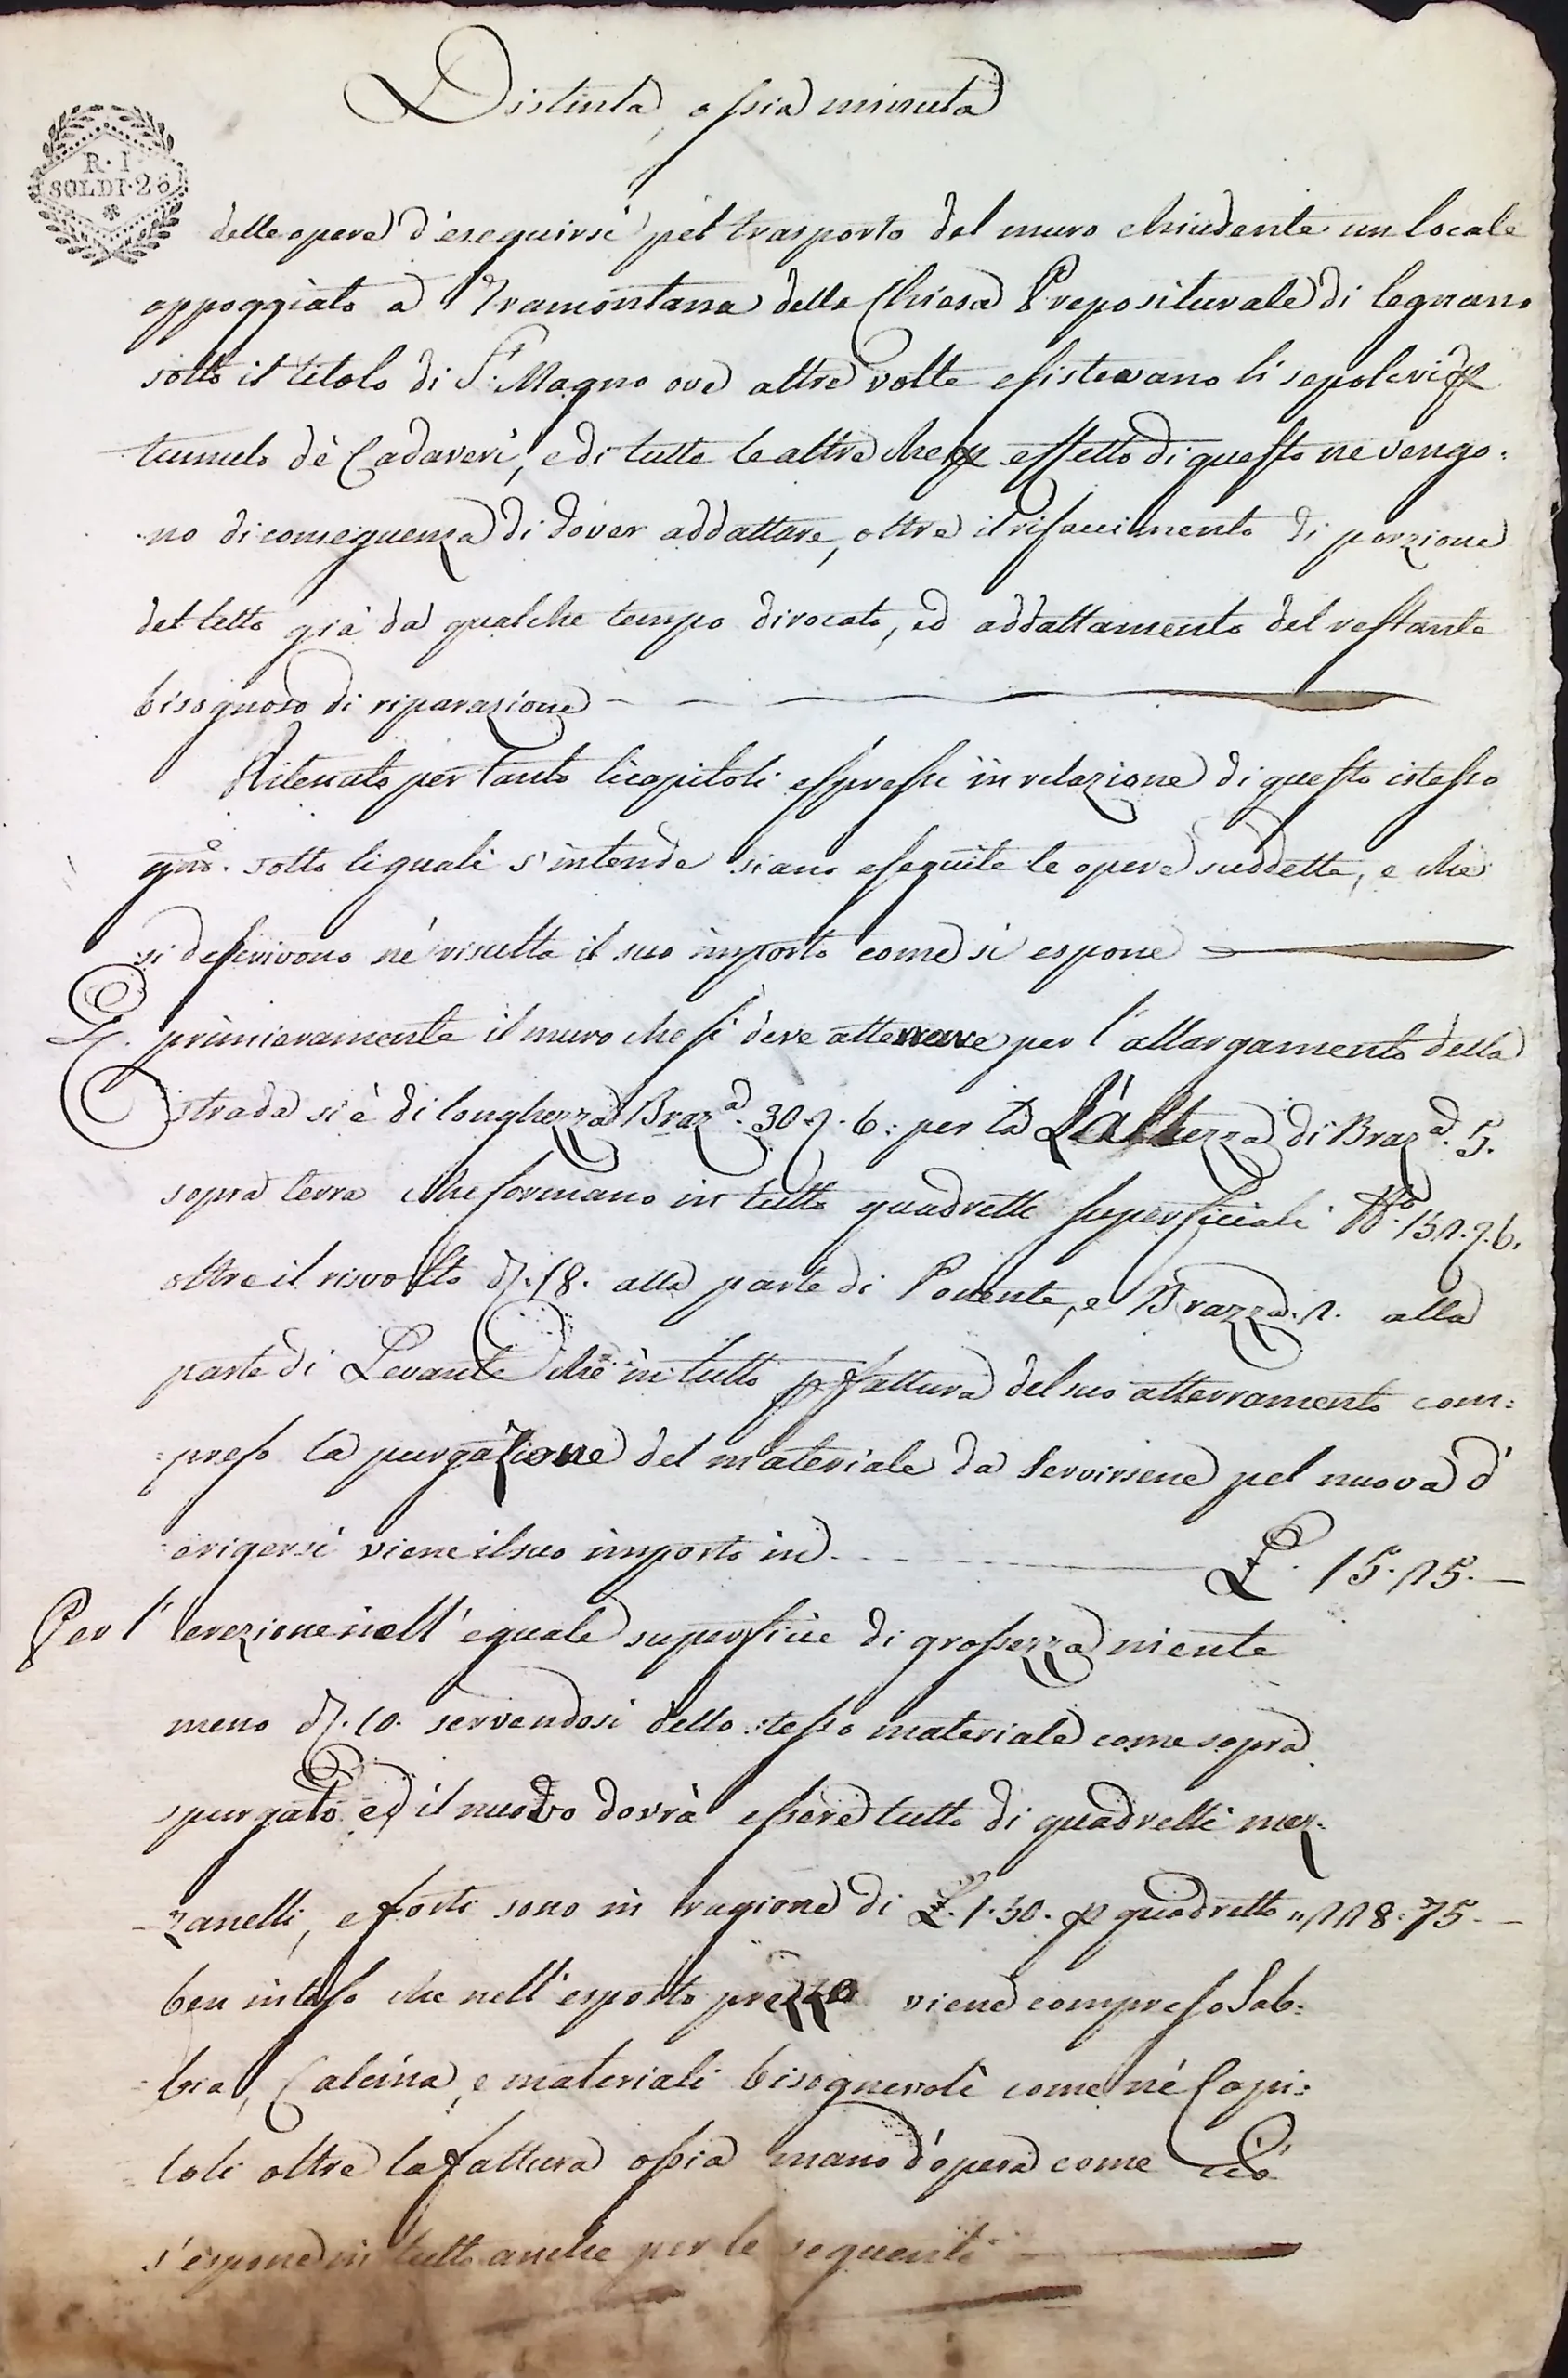 Distinta, ossia minuta
R. I.
SOLDI. 26
delle opere d'eseguirsi pel trasporto del muro chiudente un locale
appoggiato a Tramontana della Chiesa Prepositurale di Legnano
sotto il titolo di S. Magno ove altre volte esistevano li sepolcri p
tumulo dè Cadaveri, e di tutte le altre che p effetto di questo ne vengo:
no di conseguenza di dover addattare, oltre il rifaccimento di porzione
del tetto già da qualche tempo dirocato, ed addattamento del restante
bisognoso di riparazione
Ritenuto per tanto li capitoli espressi in relazione di questo istesso
gno. sotto li quali s'intende siano eseguite le opere suddette, e che
si descrivono nè risulta il suo importo come si espone
E. primieramente il muro che si deve atterrare per l'allargamento della
strada si è di longhezza Braza. 30. 7. 6: per la L'altezza di Braza. 5.
sopra terra che formano in tutto quadretti superficiali No. 152. 7. 6.
oltre il risvolto d'. 18. alla parte di Ponente, e Brazza. 2. alla
parte di Levante che in tutto p fattura del suo atterramento com:
:preso la purgazione del materiale da servirsene pel nuova d'
:erigersi viene il suo importo in L. 15. 25.
Per l'erezione nell'eguale superficie di grossezza niente
meno d'. 10. servendosi dello stesso materiale come sopra
spurgato ed il nuovo dovrà essere tutto di quadrelli mez:
zanelli, e forti sono in ragione di L. 1. 50. p quadretto " 228: 75.
ben inteso che nell'esposto prezzo viene compreso Sab:
bia, Calcina, e materiali bisognevoli come nè Capi:
toli oltre la fattura ossia mano d'opera come ciò
s'espone in tutto anche per le seguenti